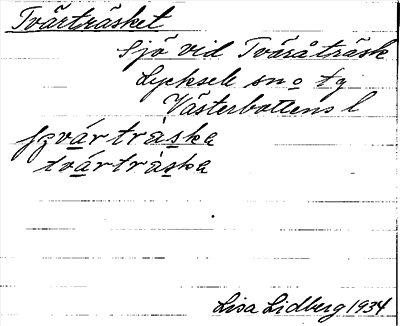 Tvärträsket
Sjö vid Tväråträsk
Lycksele sn o tg
Västerbottens l
tvártràska
Lisa Lidberg 1934